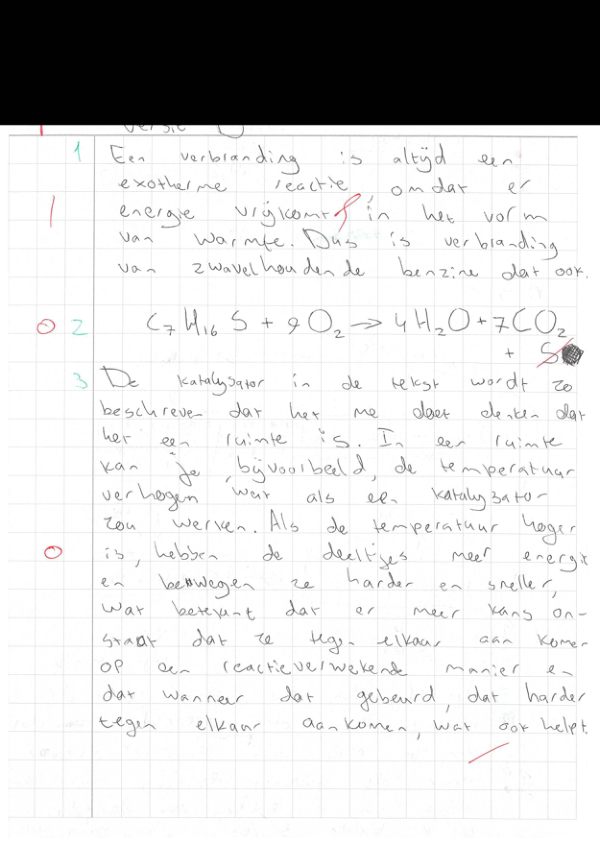 versie
1 Een verbranding is altijd een
exotherme reactie, omdat er
1 energie vrijkomt in het vorm
van warmte. Dus is verbranding
van zwavelhoudende benzine dat ook.
0 2 C₇H₁₆S + 9O₂ → 4H₂O + 7CO₂
+ S
3 De katalysator in de tekst wordt zo
beschreven dat het me doet denken dat
het een ruimte is. In een ruimte
kan je, bijvoorbeeld, de temperatuur
verhogen wat als een katalysator
zou werken. Als de temperatuur hoger
0 is, hebben de deeltjes meer energie
en bewegen ze harder en sneller,
wat betekent dat er meer kans on-
staat dat ze tegen elkaar aan komen
op een reactieverwekende manier en
dat wanneer dat gebeurd, dat harder
tegen elkaar aankomen, wat ook helpt.